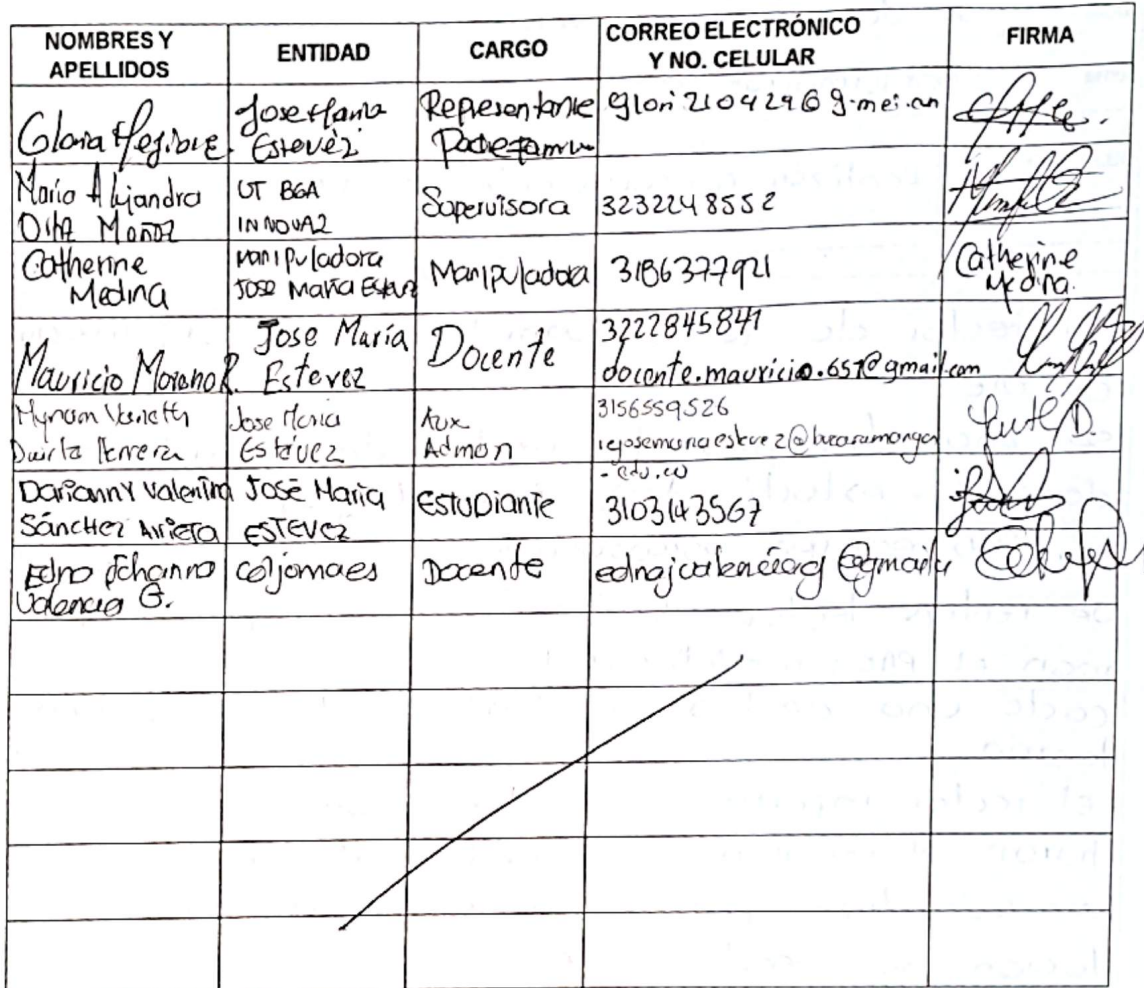 NOMBRES Y
APELLIDOS
ENTIDAD
CARGO
CORREO ELECTRÓNICO
Y NO. CELULAR
FIRMA
Gloria
Jose Maria
Estevéz
Representante
Padefamu
Maria Alejandra
Muñoz
UT BGA
INNOVA2
Supervisora
3232248552
Catherine
Medina
Manipuladora
JOSE MARÍA Estevez
Manipuladora
3186377921
Catherine
Medina.
Mauricio Moreno R.
Jose María
Estevez
Docente
3222845841
docente.mauricio.657@gmail.com
Myriam
Herrera
Jose Maria
Estévez
Aux
Admon
3156559526
iejosemariaestevez@bucaramanga
.edu.co
D.
Darianny Valentina
Sánchez Arrieta
José María
ESTEVEZ
Estudiante
3103143567
Edna Johanna
Valencia G.
coljomaes
Docente